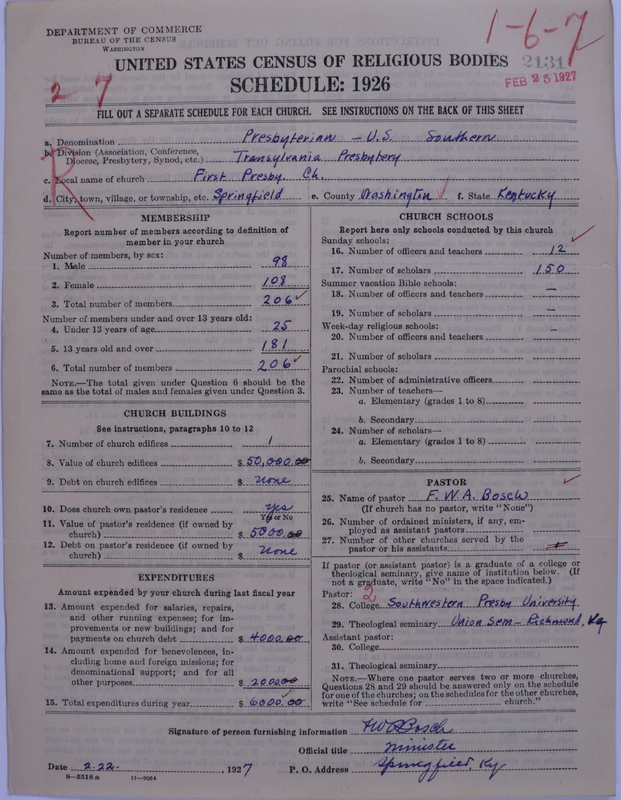 DEPARTMENT OF COMMERCE
BUREAU OF THE CENSUS
WASHINGTON
1-6-7
2131
FEB 25 1927
UNITED STATES CENSUS OF RELIGIOUS BODIES
SCHEDULE: 1926
2 7
FILL OUT A SEPARATE SCHEDULE FOR EACH CHURCH. SEE INSTRUCTIONS ON THE BACK OF THIS SHEET
R
a. Denomination Presbyterian - U.S. Southern
b. Division (Association, Conference, Diocese, Presbytery, Synod, etc.) Transylvania Presbytery
c. Local name of church First Presby. Ch.
d. City, town, village, or township, etc. Springfield e. County Washington f. State Kentucky
MEMBERSHIP
Report number of members according to definition of
member in your church
Number of members, by sex:
1. Male 98
2. Female 108
3. Total number of members 206
Number of members under and over 13 years old:
4. Under 13 years of age 25
5. 13 years old and over 181
6. Total number of members 206
NOTE.—The total given under Question 6 should be
same as the total of males and females given under Question 3.
CHURCH BUILDINGS
See instructions, paragraphs 10 to 12
7. Number of church edifices 1
8. Value of church edifices $ 50,000.00
9. Debt on church edifices $ none
10. Does church own pastor's residence yes
Yes or No
11. Value of pastor's residence (if owned by
church) $ 5000.00
12. Debt on pastor's residence (if owned by
church) $ none
EXPENDITURES
Amount expended by your church during last fiscal year
13. Amount expended for salaries, repairs,
and other running expenses; for im-
provements or new buildings; and for
payments on church debt $ 4000.00
14. Amount expended for benevolences, in-
cluding home and foreign missions; for
denominational support; and for all
other purposes $ 2000.00
15. Total expenditures during year $ 6000.00
CHURCH SCHOOLS
Report here only schools conducted by this church
Sunday schools:
16. Number of officers and teachers 12
17. Number of scholars 150
Summer vacation Bible schools:
18. Number of officers and teachers —
19. Number of scholars —
Week-day religious schools: —
20. Number of officers and teachers
21. Number of scholars
Parochial schools:
22. Number of administrative officers
23. Number of teachers—
a. Elementary (grades 1 to 8)
b. Secondary
24. Number of scholars—
a. Elementary (grades 1 to 8)
b. Secondary
PASTOR
25. Name of pastor F. W. A. Bosch
(If church has no pastor, write "None")
26. Number of ordained ministers, if any, em-
ployed as assistant pastors
27. Number of other churches served by the
pastor or his assistants
If pastor (or assistant pastor) is a graduate of a college or
theological seminary, give name of institution below. (If
not a graduate, write "No" in the space indicated.)
Pastor: 2
28. College Southwestern Presby University
29. Theological seminary Union Sem - Richmond, Va
Assistant pastor:
30. College
31. Theological seminary
NOTE.—Where one pastor serves two or more churches,
Questions 28 and 29 should be answered only on the schedule
for one of the churches; on the schedules for the other churches,
write "See schedule for church."
Signature of person furnishing information FWA Bosch
Official title minister
Date 2-22-, 1927 P. O. Address Springfield, Ky
8—5518a 11—9024